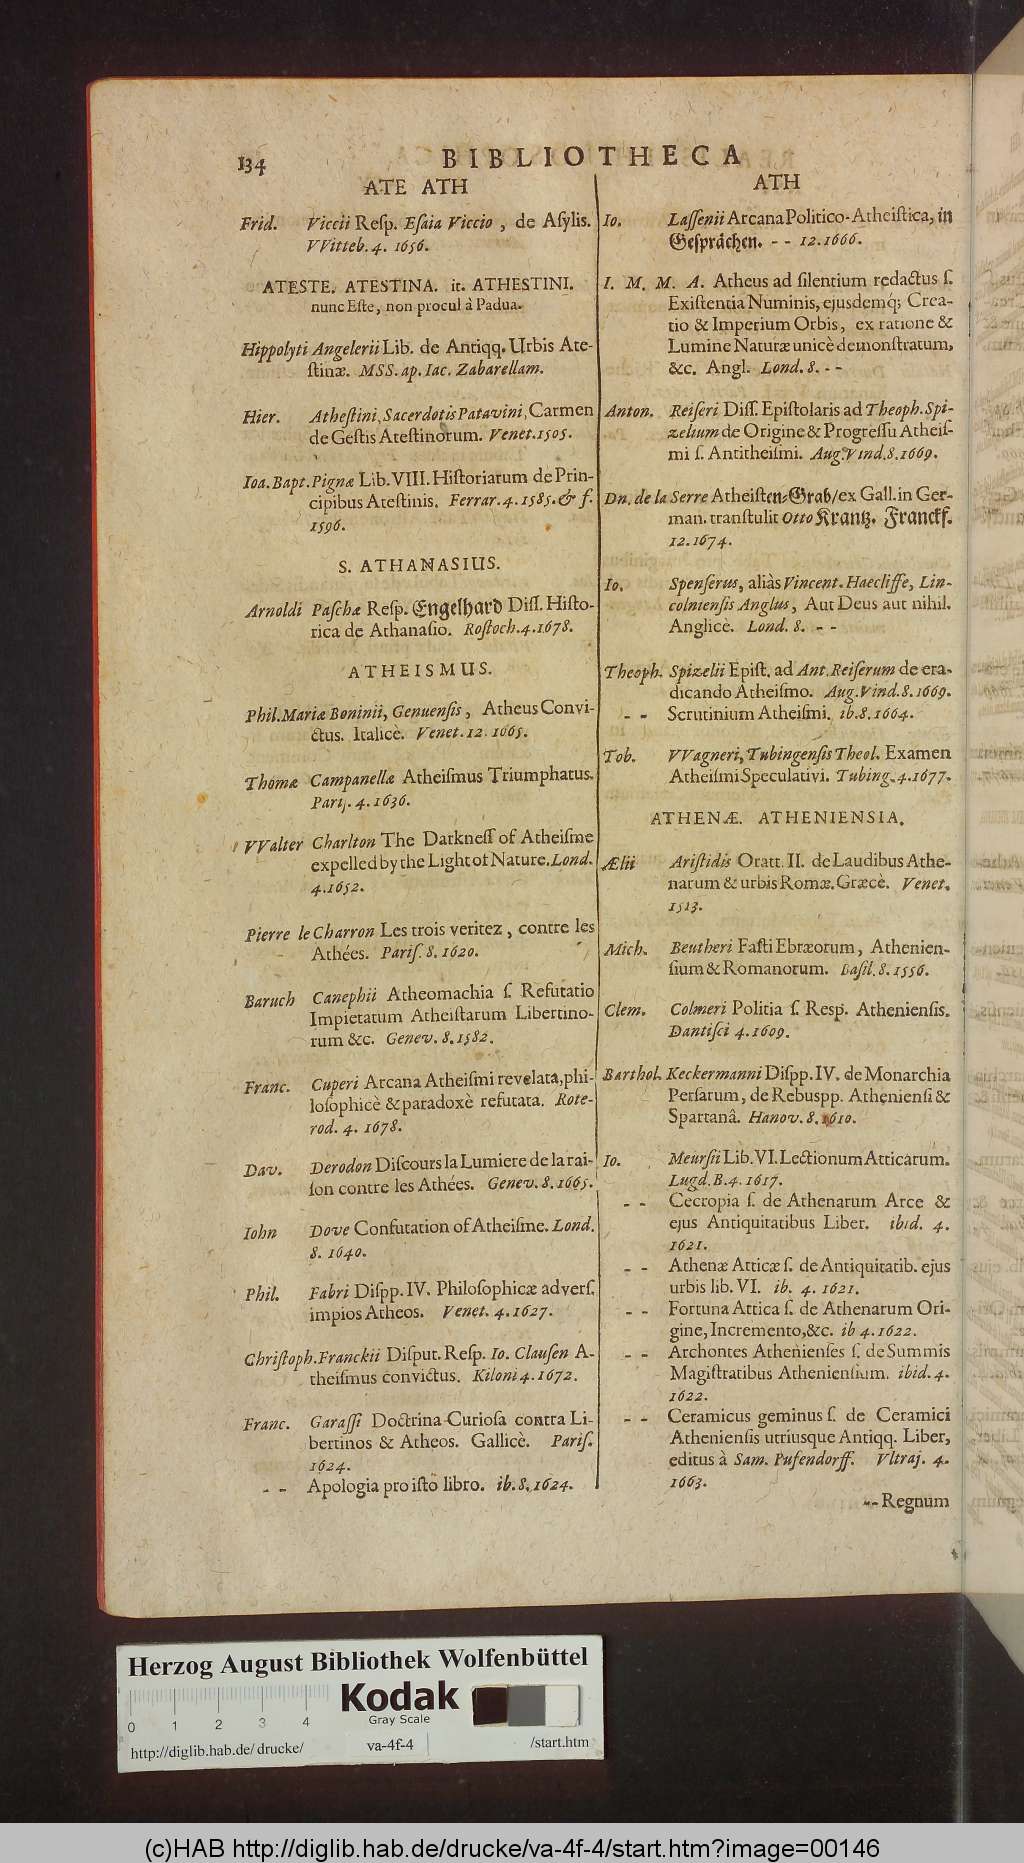 134
BIBLIOTHECA
ATE ATH
Frid. Viccii Reſp. Eſaia Viccio, de Aſylis.
VVitteb. 4. 1656.
ATESTE. ATESTINA. it. ATHESTINI.
nunc Eſte, non procul à Padua.
Hippolyti Angelerii Lib. de Antiqq. Urbis Ate-
ſtinæ. MSS. ap. Iac. Zabarellam.
Hier. Atheſtini, Sacerdotis Patavini, Carmen
de Geſtis Ateſtinorum. Venet. 1505.
Ioa. Bapt. Pignæ Lib. VIII. Hiſtoriarum de Prin-
cipibus Ateſtinis. Ferrar. 4. 1585. & f.
1596.
S. ATHANASIUS.
Arnoldi Paſchæ Reſp. Engelhard Diſſ. Hiſto-
rica de Athanaſio. Roſtoch. 4. 1678.
ATHEISMUS.
Phil. Mariæ Boninii, Genuenſis, Atheus Convi-
ctus. Italicè. Venet. 12. 1665.
Thomæ Campanellæ Atheiſmus Triumphatus.
Pariſ. 4. 1636.
VValter Charlton The Darkneſſ of Atheiſme
expelled by the Light of Nature. Lond.
4. 1652.
Pierre le Charron Les trois veritez, contre les
Athées. Pariſ. 8. 1620.
Baruch Canephii Atheomachia ſ. Refutatio
Impietatum Atheiſtarum Libertino-
rum &c. Genev. 8. 1582.
Franc. Cuperi Arcana Atheiſmi revelata, phi-
loſophicè & paradoxè refutata. Rote-
rod. 4. 1678.
Dav. Derodon Diſcours la Lumiere de la rai-
ſon contre les Athées. Genev. 8. 1665.
Iohn Dove Confutation of Atheiſme. Lond.
8. 1640.
Phil. Fabri Diſpp. IV. Philoſophicæ adverſ.
impios Atheos. Venet. 4. 1627.
Chriſtoph. Franckii Diſput. Reſp. Io. Clauſen A-
theiſmus convictus. Kiloni 4. 1672.
Franc. Garaſſi Doctrina Curioſa contra Li-
bertinos & Atheos. Gallicè. Pariſ.
1624.
-- Apologia pro iſto libro. ib. 8. 1624.
ATH
Io. Laſſenii Arcana Politico-Atheiſtica, in
Geſprächen. -- 12. 1666.
I. M. M. A. Atheus ad ſilentium redactus ſ.
Exiſtentia Numinis, ejusdemq; Crea-
tio & Imperium Orbis, ex ratione &
Lumine Naturæ unicè demonſtratum,
&c. Angl. Lond. 8. --
Anton. Reiſeri Diſſ. Epiſtolaris ad Theoph. Spi-
zelium de Origine & Progreſſu Atheiſ-
mi ſ. Antitheiſmi. Aug. Vind. 8. 1669.
Dn. de la Serre Atheiſten-Grab/ ex Gall. in Ger-
man. tranſtulit Otto Krantz. Franckf.
12. 1674.
Io. Spenſerus, aliàs Vincent. Haecliffe, Lin-
colnienſis Anglus, Aut Deus aut nihil.
Anglicè. Lond. 8. --
Theoph. Spizelii Epiſt. ad Ant. Reiſerum de era-
dicando Atheiſmo. Aug. Vind. 8. 1669.
-- Scrutinium Atheiſmi. ib. 8. 1664.
Tob. VVagneri, Tubingenſis Theol. Examen
Atheiſmi Speculativi. Tubing. 4. 1677.
ATHENÆ. ATHENIENSIA.
Ælii Ariſtidis Oratt. II. de Laudibus Athe-
narum & urbis Romæ. Græcè. Venet.
1513.
Mich. Beutheri Faſti Ebræorum, Athenien-
ſium & Romanorum. Baſil. 8. 1556.
Clem. Colmeri Politia ſ. Resp. Athenienſis.
Dantiſci 4. 1609.
Barthol. Keckermanni Diſpp. IV. de Monarchia
Perſarum, de Rebuspp. Athenienſi &
Spartanâ. Hanov. 8. 1610.
Io. Meurſii Lib. VI. Lectionum Atticarum.
Lugd. B. 4. 1617.
-- Cecropia ſ. de Athenarum Arce &
ejus Antiquitatibus Liber. ibid. 4.
1621.
-- Athenæ Atticæ ſ. de Antiquitatib. ejus
urbis lib. VI. ib. 4. 1621.
-- Fortuna Attica ſ. de Athenarum Ori-
gine, Incremento, &c. ib 4. 1622.
-- Archontes Athenienſes ſ. de Summis
Magiſtratibus Athenienſium. ibid. 4.
1622.
-- Ceramicus geminus ſ. de Ceramici
Athenienſis utriusque Antiqq. Liber,
editus à Sam. Pufendorff. Vltraj. 4.
1663.
-- Regnum
Herzog August Bibliothek Wolfenbüttel
Kodak
Gray Scale
0 1 2 3 4
http://diglib.hab.de/drucke/ va-4f-4 /start.htm
(c)HAB http://diglib.hab.de/drucke/va-4f-4/start.htm?image=00146